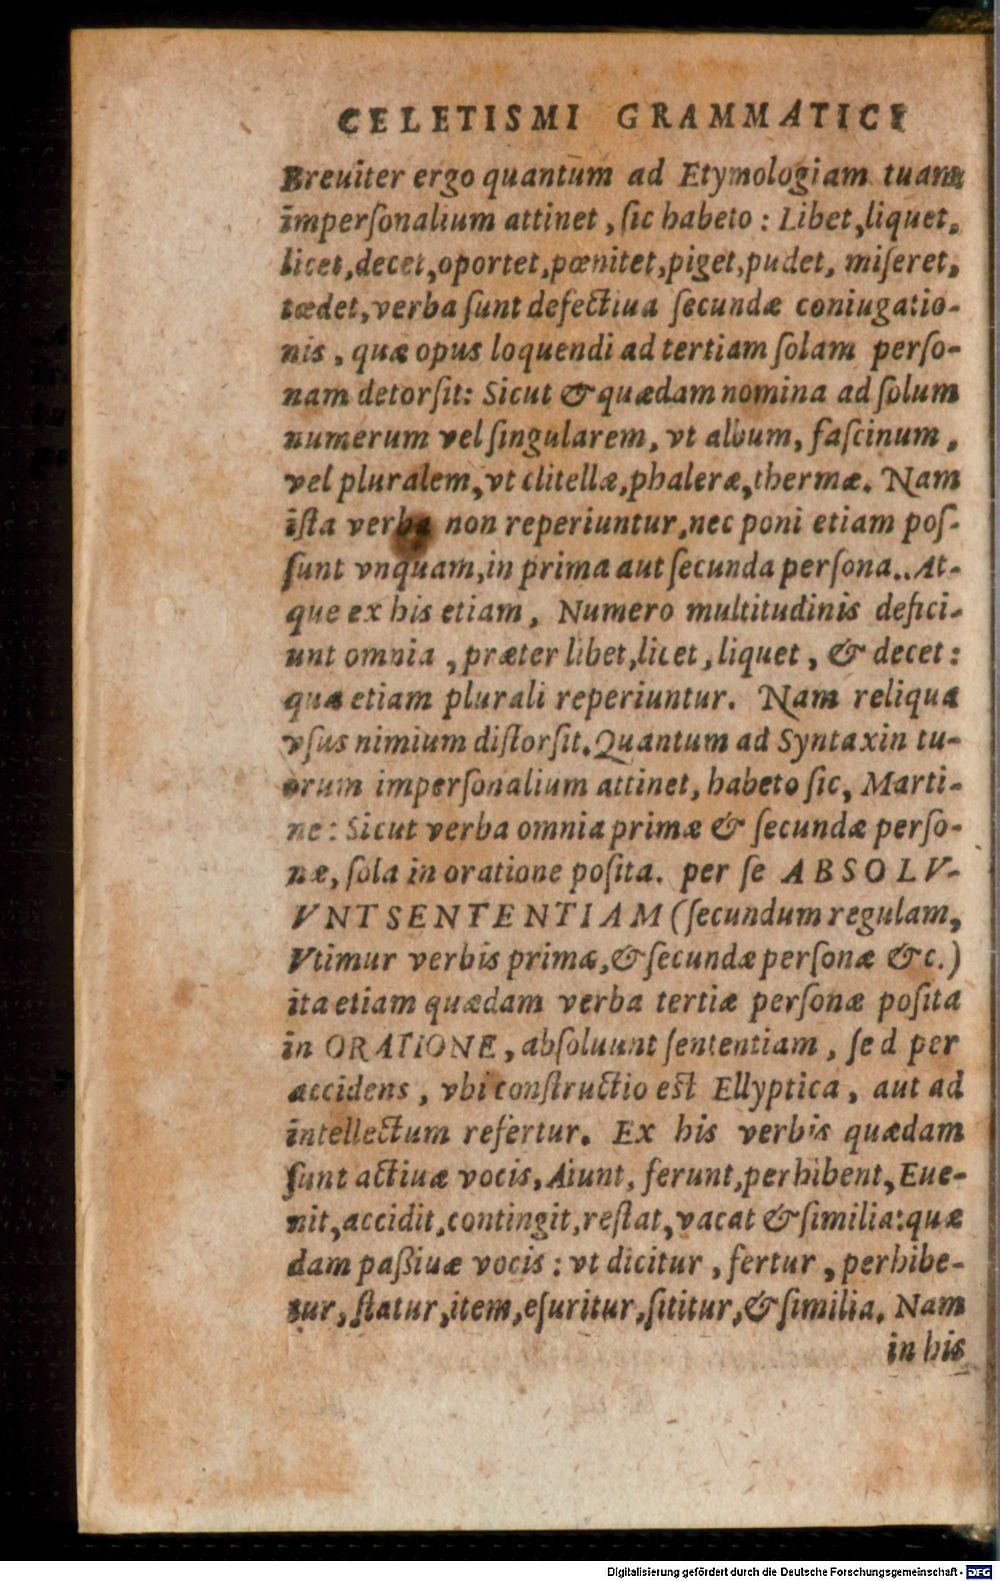 CELETISMI GRAMMATICI
Breuiter ergo quantum ad Etymologiam tuam
imperſonalium attinet, ſic habeto: Libet, liquet,
licet, decet, oportet, pœnitet, piget, pudet, miſeret,
tædet, verba ſunt defectiua ſecundæ coniugatio-
nis, quæ opus loquendi ad tertiam ſolam perſo-
nam detorſit: Sicut & quædam nomina ad ſolum
numerum vel ſingularem, vt album, faſcinum,
vel pluralem, vt clitellæ, phaleræ, thermæ. Nam
iſta verba non reperiuntur, nec poni etiam poſ-
ſunt vnquam, in prima aut ſecunda perſona.. At-
que ex his etiam, Numero multitudinis defici-
unt omnia, præter libet, licet, liquet, & decet:
quæ etiam plurali reperiuntur. Nam reliqua
vſus nimium diſtorſit. Quantum ad Syntaxin tu-
orum imperſonalium attinet, habeto ſic, Marti-
ne: Sicut verba omnia primæ & ſecundæ perſo-
næ, ſola in oratione poſita. per ſe ABSOLV-
VNT SENTENTIAM (ſecundum regulam,
Vtimur verbis primæ, & ſecundæ perſonæ &c.)
ita etiam quædam verba tertiæ perſonæ poſita
in ORATIONE, abſoluunt ſententiam, ſed per
accidens, vbi conſtructio eſt Ellyptica, aut ad
intellectum refertur. Ex his verbis quædam
ſunt actiuæ vocis, Aiunt, ferunt, perhibent, Eue-
nit, accidit, contingit, reſtat, vacat & ſimilia: quæ
dam paßiuæ vocis: vt dicitur, fertur, perhibe-
tur, ſtatur, item, eſuritur, ſititur, & ſimilia. Nam
in his
Digitalisierung gefördert durch die Deutsche Forschungsgemeinschaft - DFG